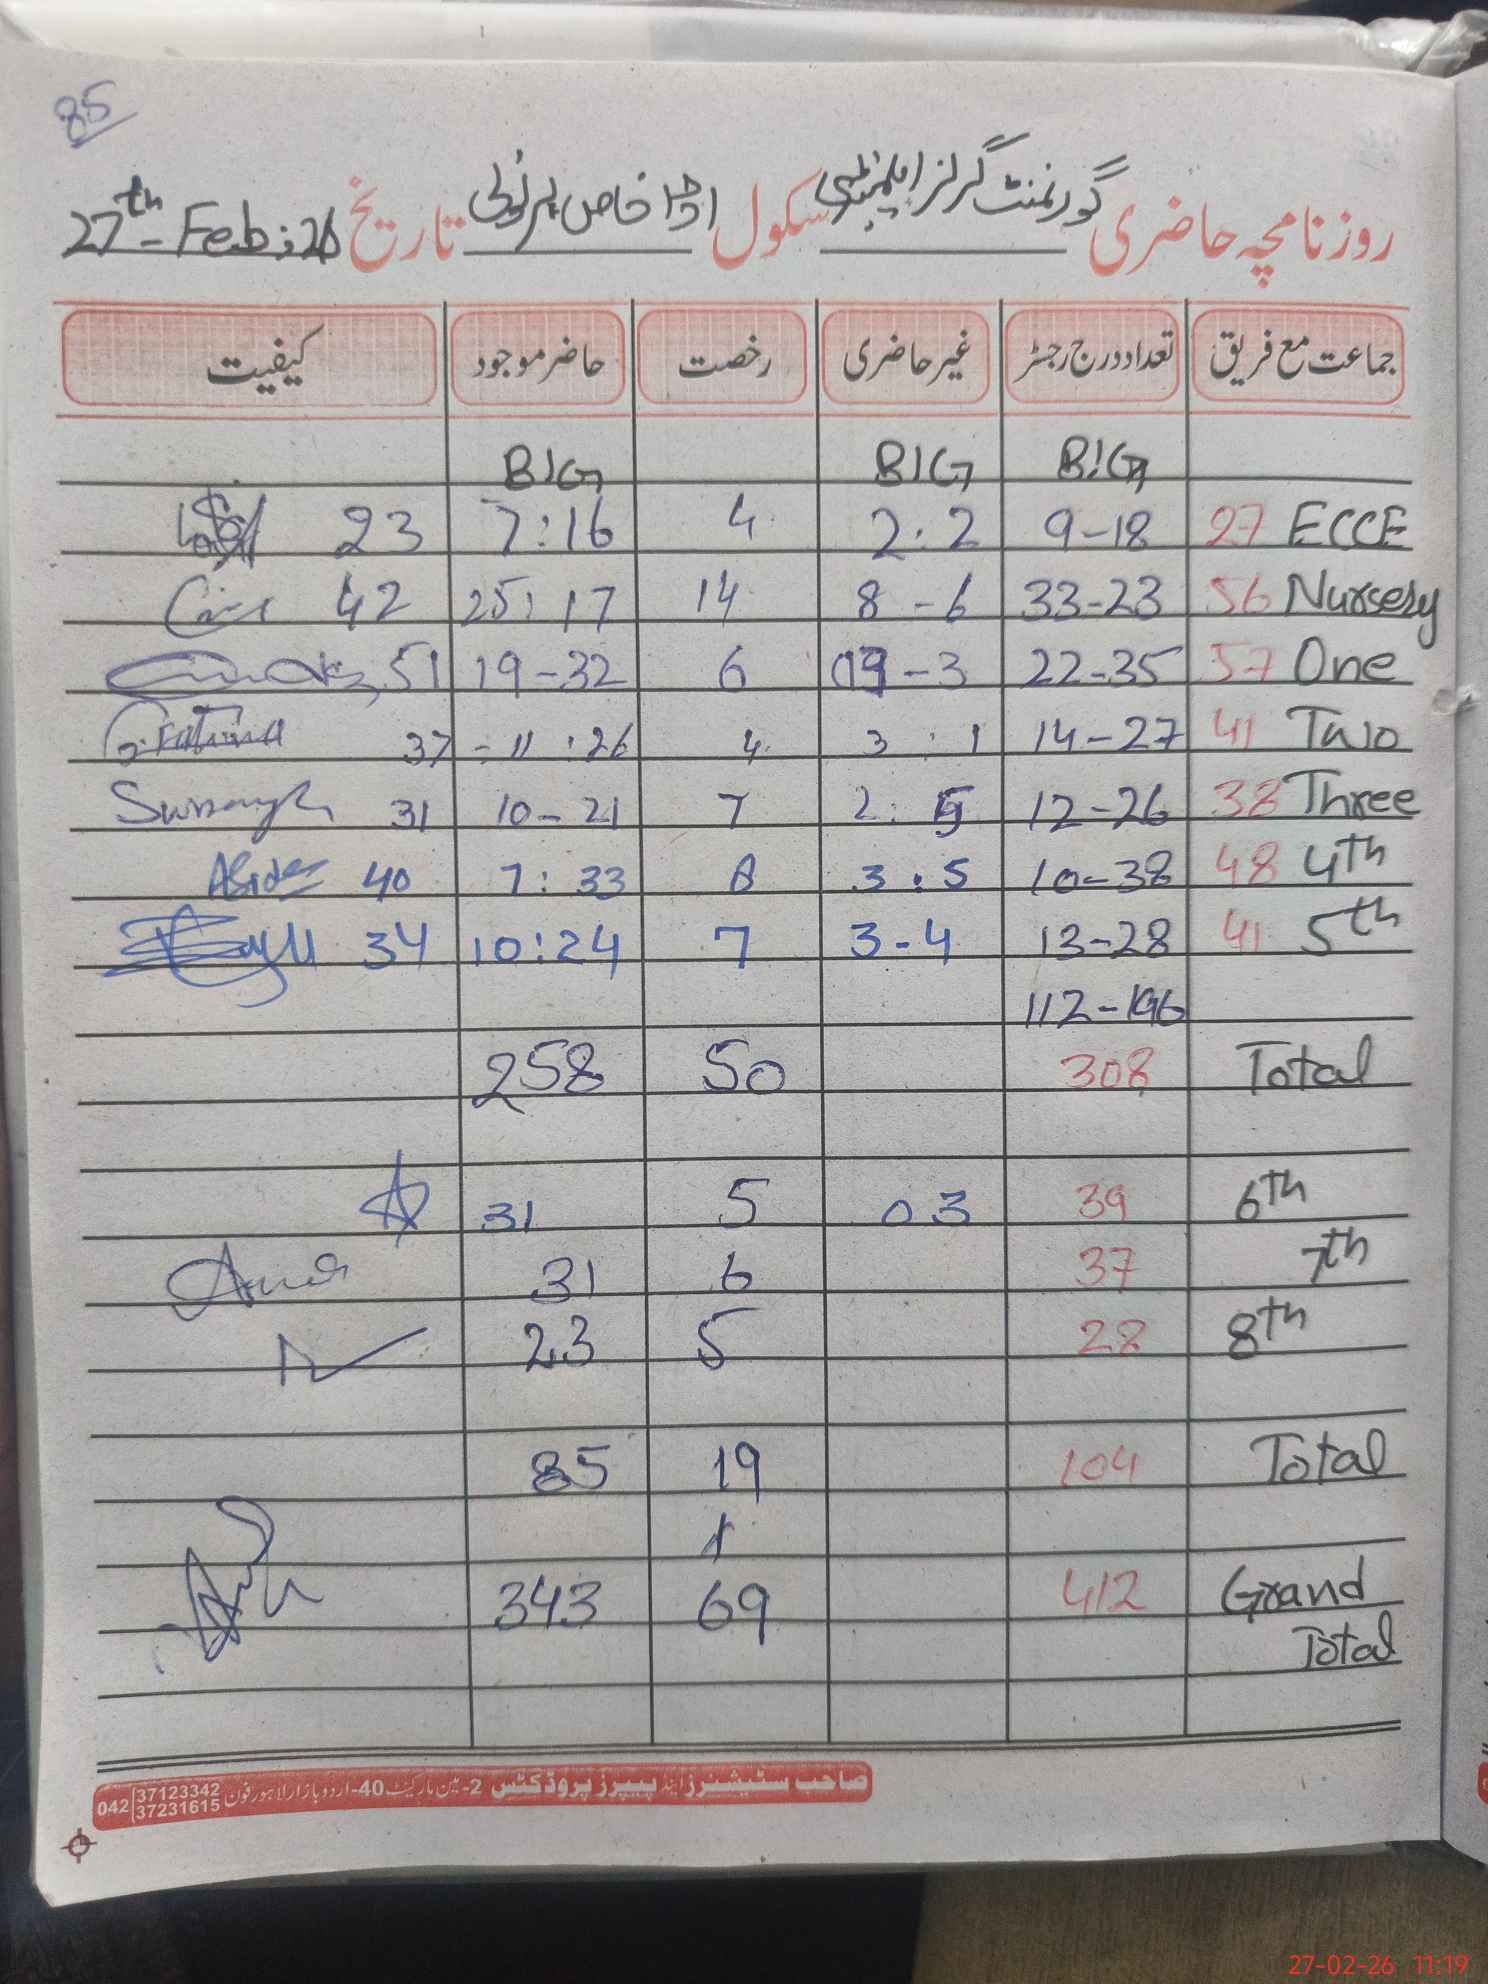 85
روزنامچہ حاضری گورنمنٹ گرلز ایلیمنٹری سکول اڈا خاص تاریخ 27th-Feb:26
جماعت مع فریق تعداد درج رجسٹر غیر حاضری رخصت حاضر موجود کیفیت
B/G B/G B/G
ECCE 27 9-18 2:2 4 7:16 23
Nursery 56 33-23 8-6 14 25:17 42
One 57 22-35 -3 6 19-32 51
Two 41 14-27 3:1 4 11:26 37 Fatima
Three 38 12-26 2:5 7 10-21 31
4th 48 10-38 3:5 8 7:33 40
5th 41 13-28 3-4 7 10:24 34
112-196
Total 308 50 258
6th 39 03 5 31
7th 37 6 31
8th 28 5 23
Total 104 19 85
Grand 412 69 343
Total
صاحب سٹیشنرز اینڈ پیپرز پروڈکٹس 2-مین مارکیٹ 40-اردو بازار لاہور فون 042 37123342
37231615
27-02-26 11:19